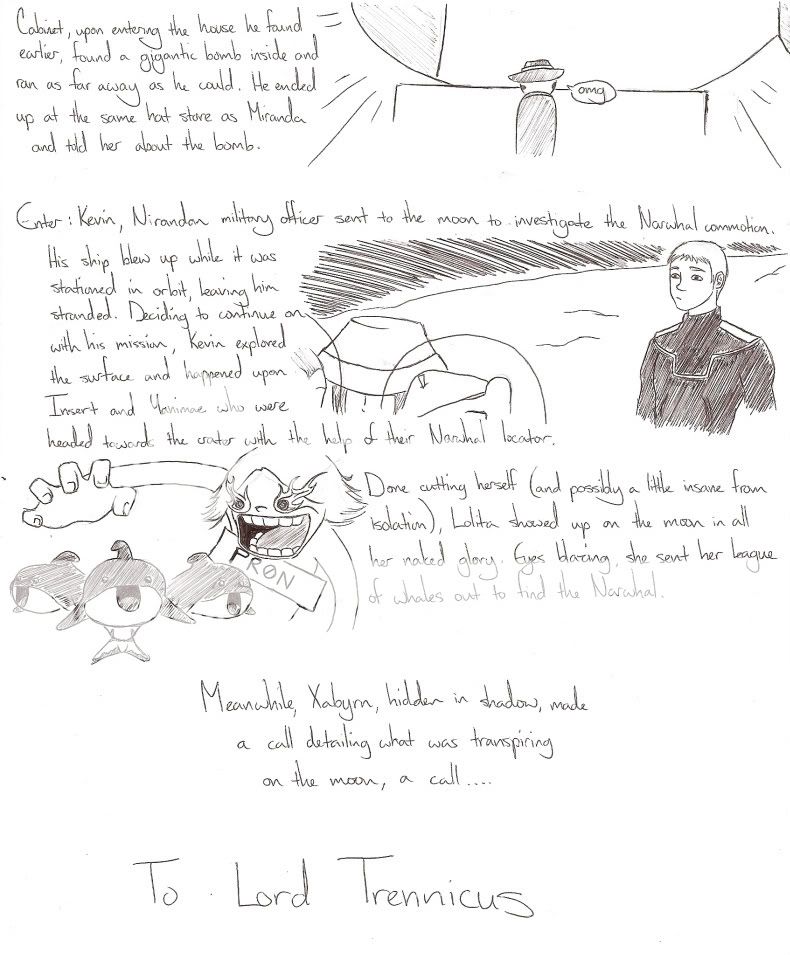 Cabinet, upon entering the house he found
earlier, found a gigantic bomb inside and
ran as far away as he could. He ended
up at the same hat store as Miranda
and told her about the bomb.
omg
Enter: Kevin, Nirandan military officer sent to the moon to investigate the Narwhal commotion.
His ship blew up while it was
stationed in orbit, leaving him
stranded. Deciding to continue on
with his mission, Kevin explored
the surface and happened upon
Insert and Yanimae who were
headed towards the crater with the help of their Narwhal locator.
Done cutting herself (and possibly a little insane from
isolation), Lolita showed up on the moon in all
her naked glory. Eyes blazing, she sent her league
of whales out to find the Narwhal.
RØN
Meanwhile, Xabyrn, hidden in shadow, made
a call detailing what was transpiring
on the moon, a call....
To Lord Trennicus